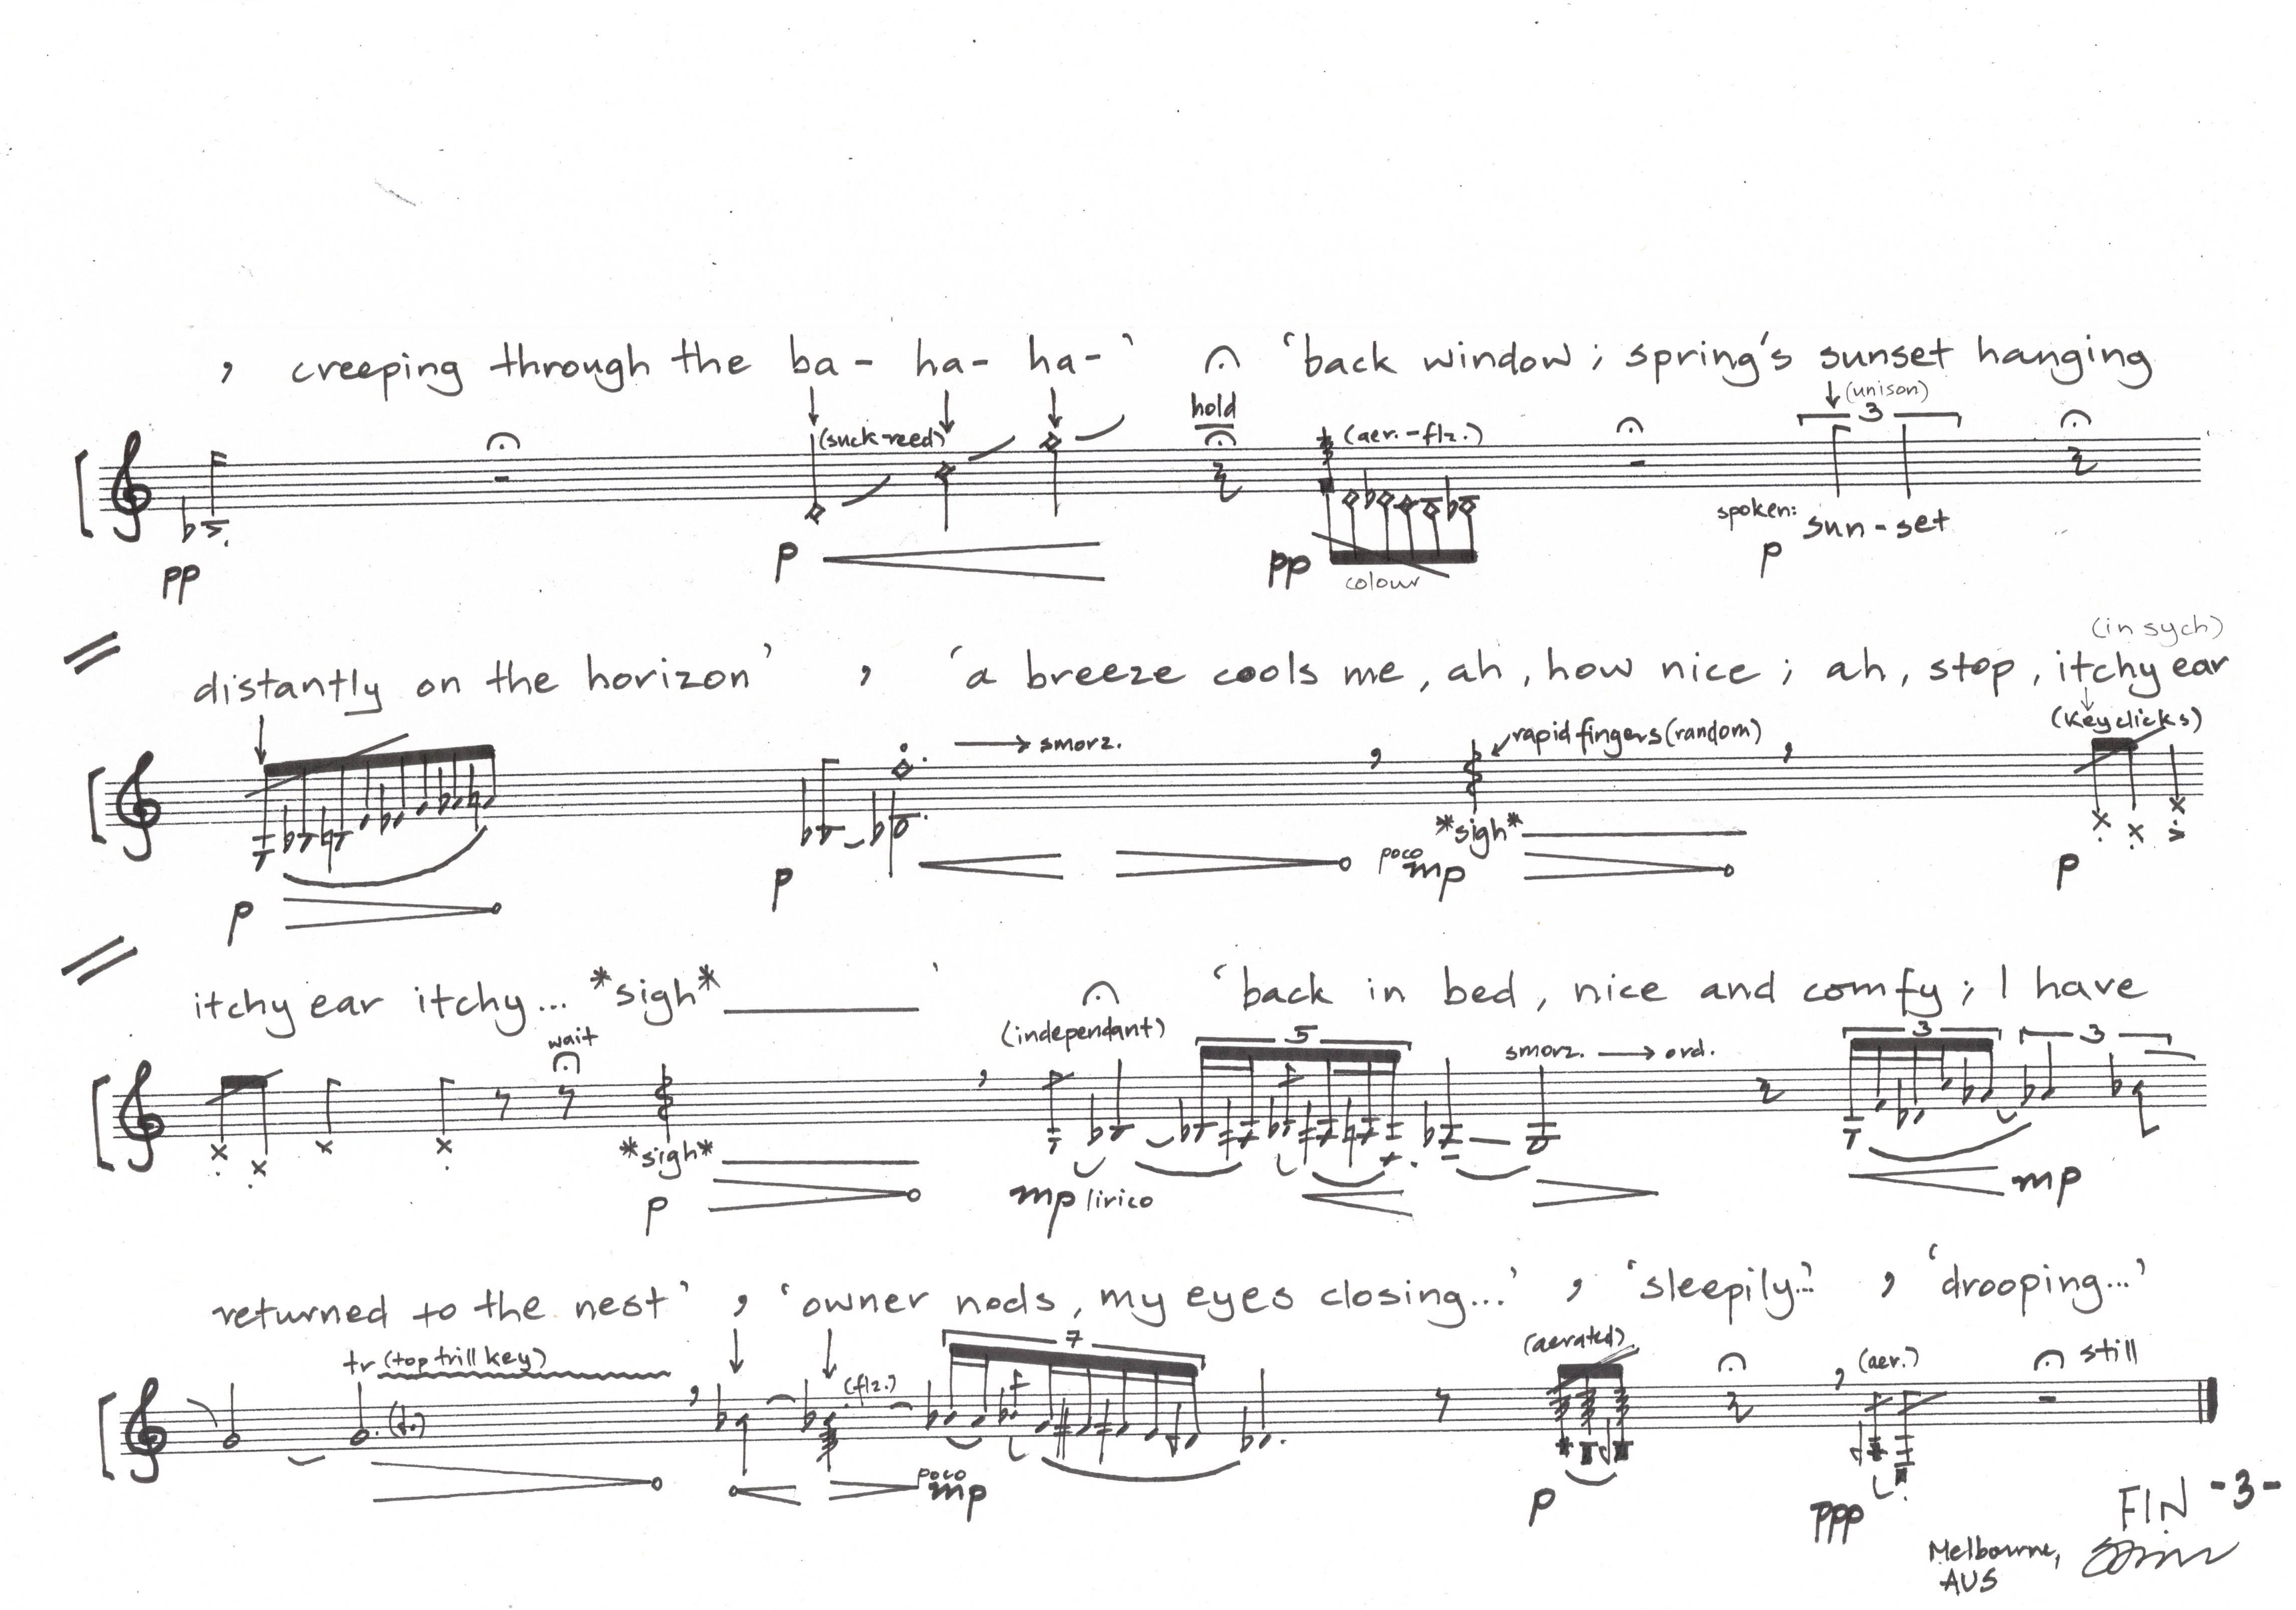 , creeping through the ba- ha- ha-' 'back window; spring's sunset hanging
(suck-reed) hold (aer.-flz.) (unison) 3
spoken: sun-set
pp p pp colour p
(in sych)
distantly on the horizon' , 'a breeze cools me, ah, how nice; ah, stop, itchy ear
→ smorz. rapid fingers (random) (key clicks)
*sigh*
p p poco mp p
itchy ear itchy... *sigh* ' 'back in bed, nice and comfy; I have
wait (independant) 5 smorz. → ord. 3 3
*sigh*
p mp lirico mp
returned to the nest' , 'owner nods, my eyes closing...' , 'sleepily..' , 'drooping...'
tr (top trill key) (flz.) 7 (aerated) (aer.) still
poco mp p ppp
FIN -3-
Melbourne,
AUS